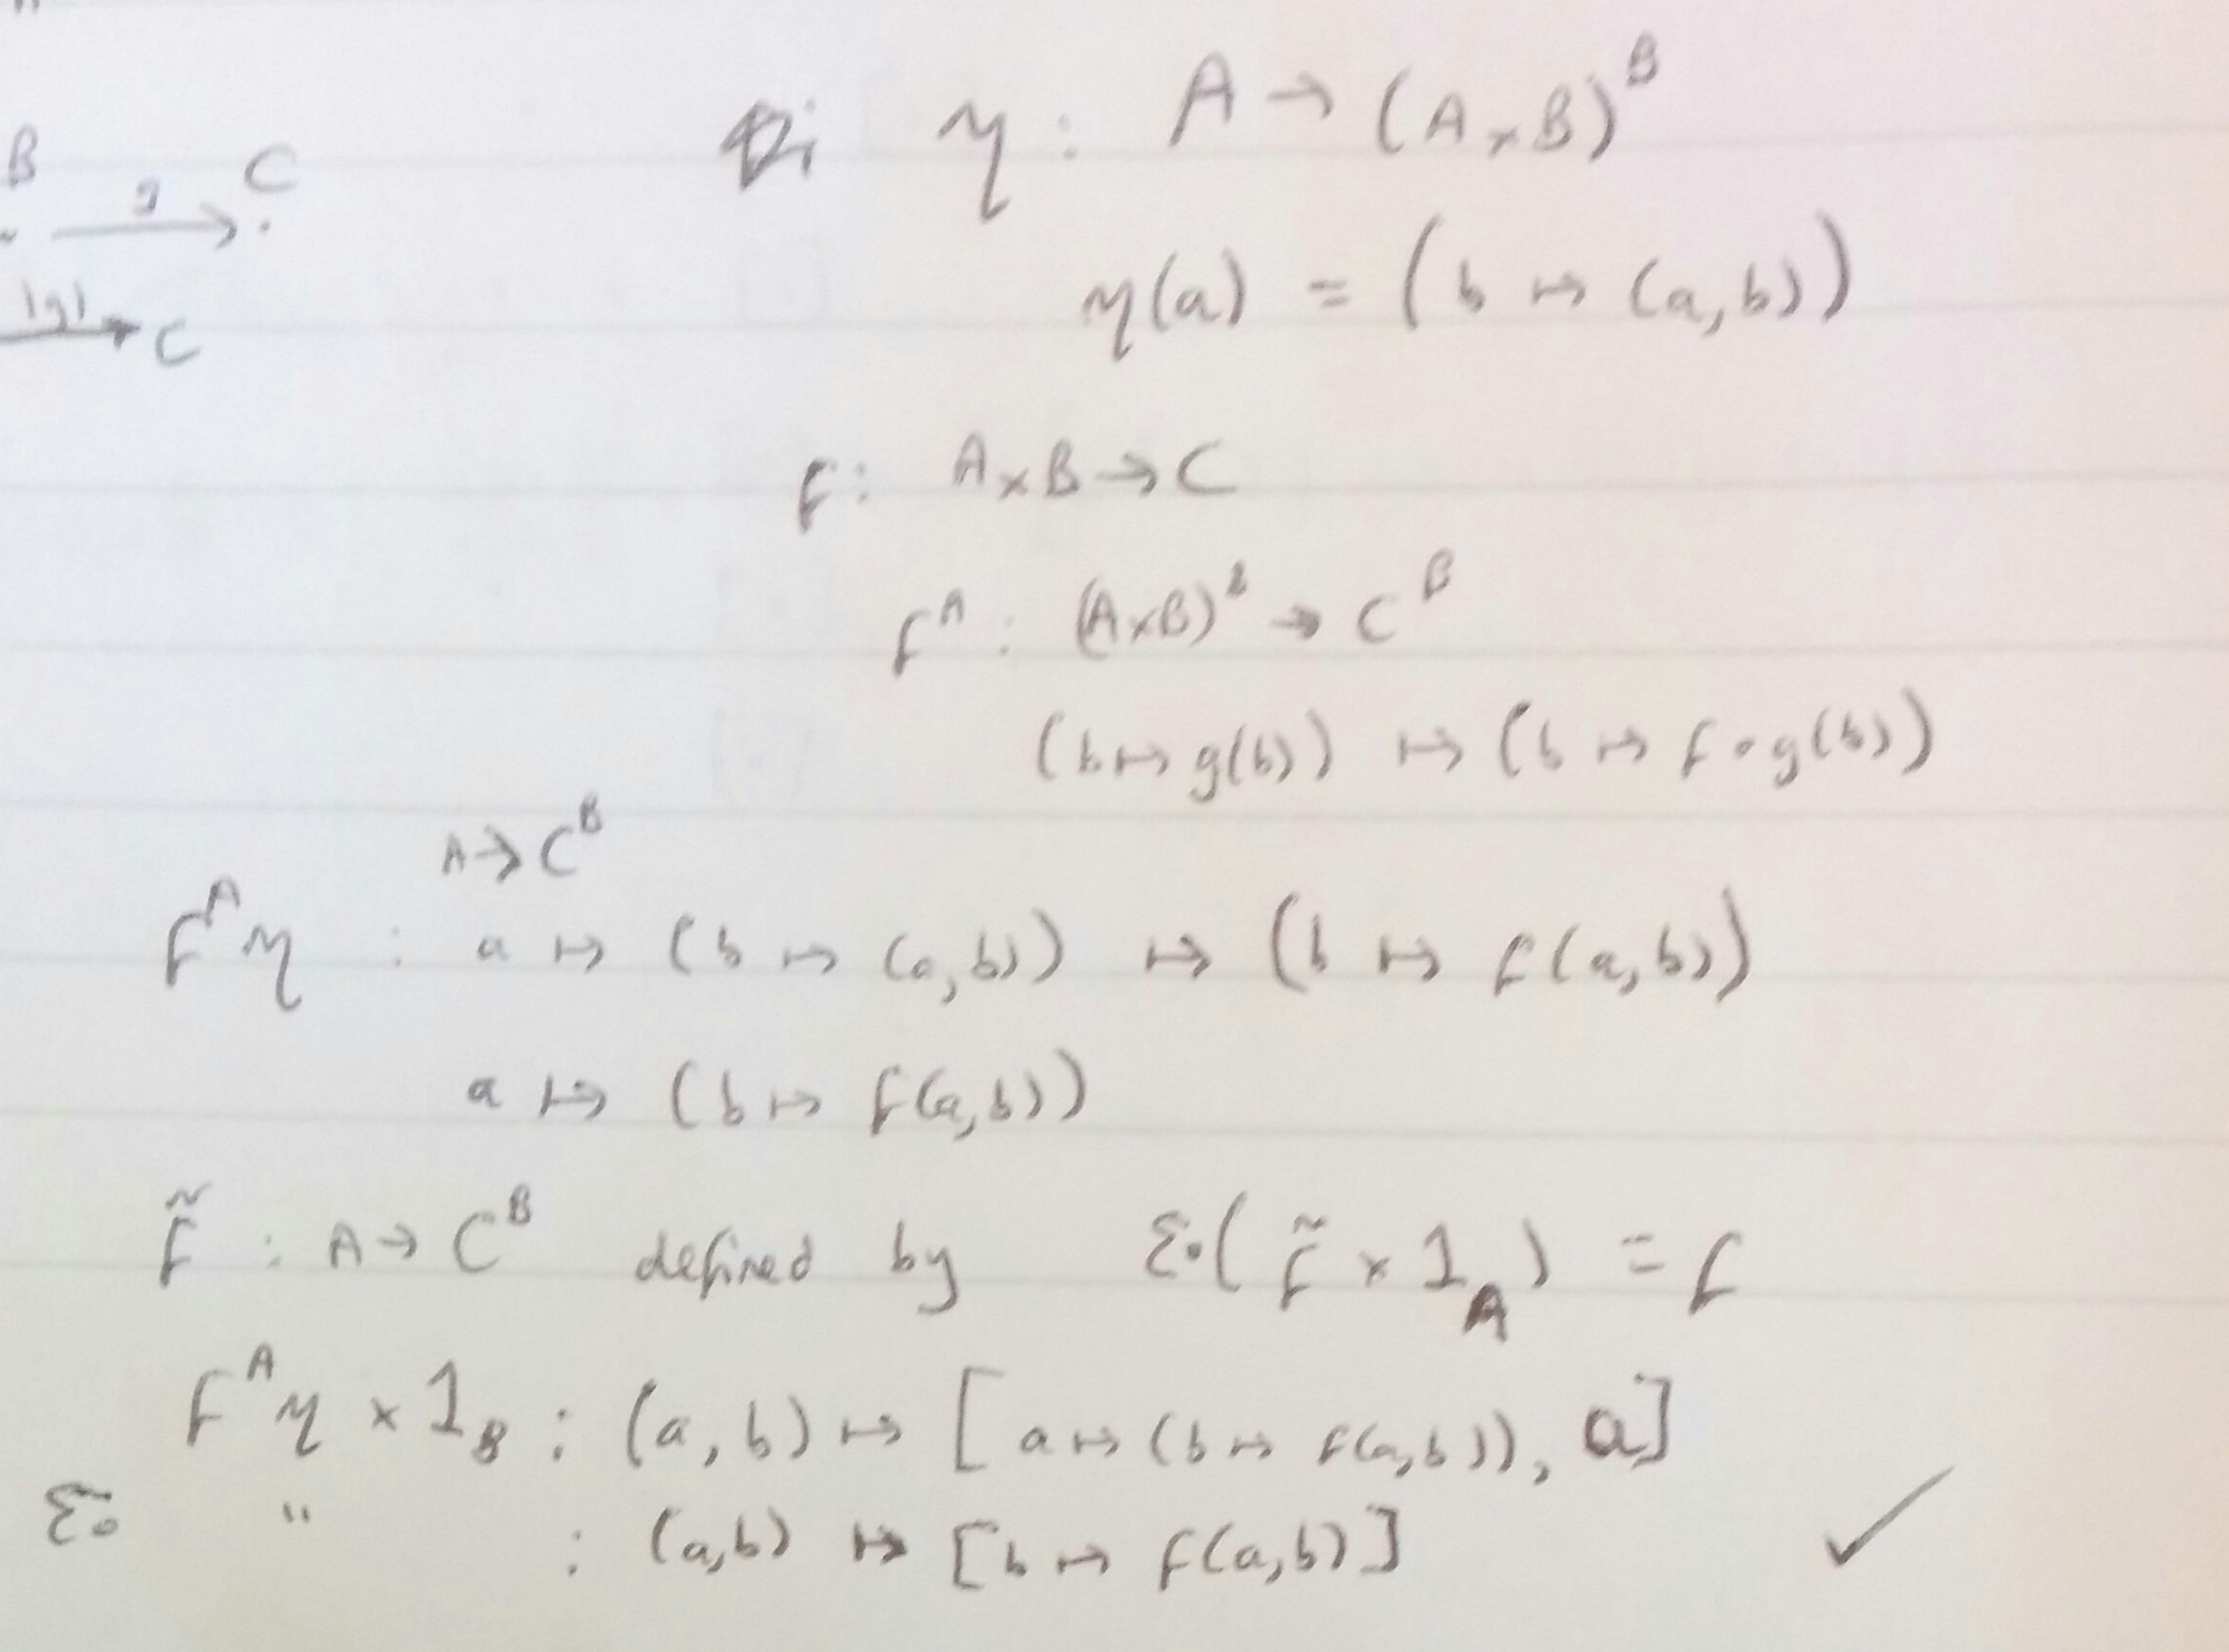 B g C
|g| C
η : A → (A × B)^B
η(a) = (b ↦ (a,b))
f : A × B → C
f^A : (A×B)^B → C^B
(b ↦ g(b)) ↦ (b ↦ f ∘ g(b))
A → C^B
f^A η : a ↦ (b ↦ (a,b)) ↦ (b ↦ f(a,b))
a ↦ (b ↦ f(a,b))
f̃ : A → C^B defined by ε∘(f̃ × 1_A) = f
f^A η × 1_B : (a,b) ↦ [a ↦ (b ↦ f(a,b)), a]
ε∘ " : (a,b) ↦ [b ↦ f(a,b)] ✓